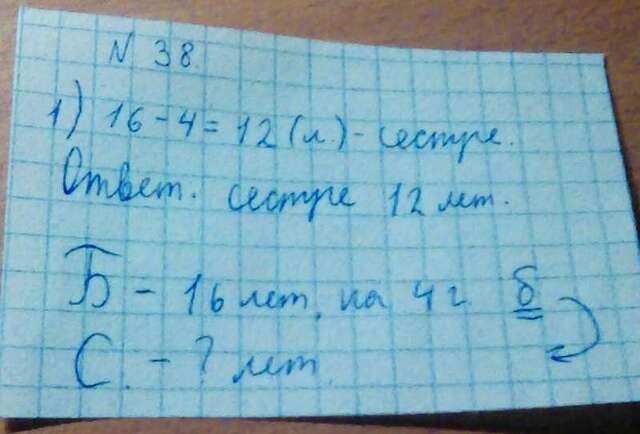 N 38.
1) 16-4=12(л.)-сестре.
Ответ. сестре 12 лет.
Б - 16 лет, на 4 г. б
С. - ? лет